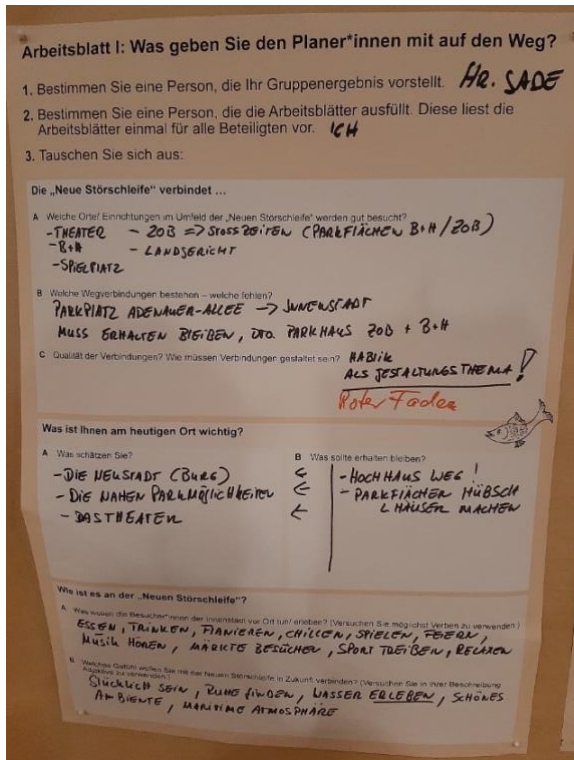 Arbeitsblatt I: Was geben Sie den Planer*innen mit auf den Weg?
1. Bestimmen Sie eine Person, die Ihr Gruppenergebnis vorstellt. HR. SADE
2. Bestimmen Sie eine Person, die die Arbeitsblätter ausfüllt. Diese liest die
Arbeitsblätter einmal für alle Beteiligten vor. ICH
3. Tauschen Sie sich aus:
Die „Neue Störschleife" verbindet ...
A Welche Orte/ Einrichtungen im Umfeld der „Neuen Störschleife" werden gut besucht?
- THEATER - ZOB => STOSSZEITEN (PARKFLÄCHEN B+H / ZOB)
- B+H - LANDGERICHT
- SPIELPLATZ
B Welche Wegverbindungen bestehen – welche fehlen?
PARKPLATZ ADENAUER-ALLEE -> INNENSTADT
MUSS ERHALTEN BLEIBEN, DTO. PARKHAUS ZOB + B+H
C Qualität der Verbindungen? Wie müssen Verbindungen gestaltet sein? HABLIK
ALS GESTALTUNGSTHEMA!
Roter Faden
Was ist Ihnen am heutigen Ort wichtig?
A Was schätzen Sie?
- DIE NEUSTADT (BURG)
- DIE NAHEN PARKMÖGLICHKEITEN
- DAS THEATER
B Was sollte erhalten bleiben?
← - HOCHHAUS WEG!
← - PARKFLÄCHEN HÜBSCH
← L HÄUSER MACHEN
Wie ist es an der „Neuen Störschleife"?
A Was wollen die Besucher*innen der Innenstadt vor Ort tun/ erleben? (Versuchen Sie möglichst Verben zu verwenden.)
ESSEN, TRINKEN, FLANIEREN, CHILLEN, SPIELEN, FEIERN,
MUSIK HÖREN, MÄRKTE BESUCHEN, SPORT TREIBEN,
B Welches Gefühl wollen Sie mit der Neuen Störschleife in Zukunft verbinden? (Versuchen Sie in Ihrer Beschreibung
Adjektive zu verwenden.)
GLÜCKLICH SEIN, RUHE FINDEN, WASSER ERLEBEN, SCHÖNES
AMBIENTE, MARITIME ATMOSPHÄRE